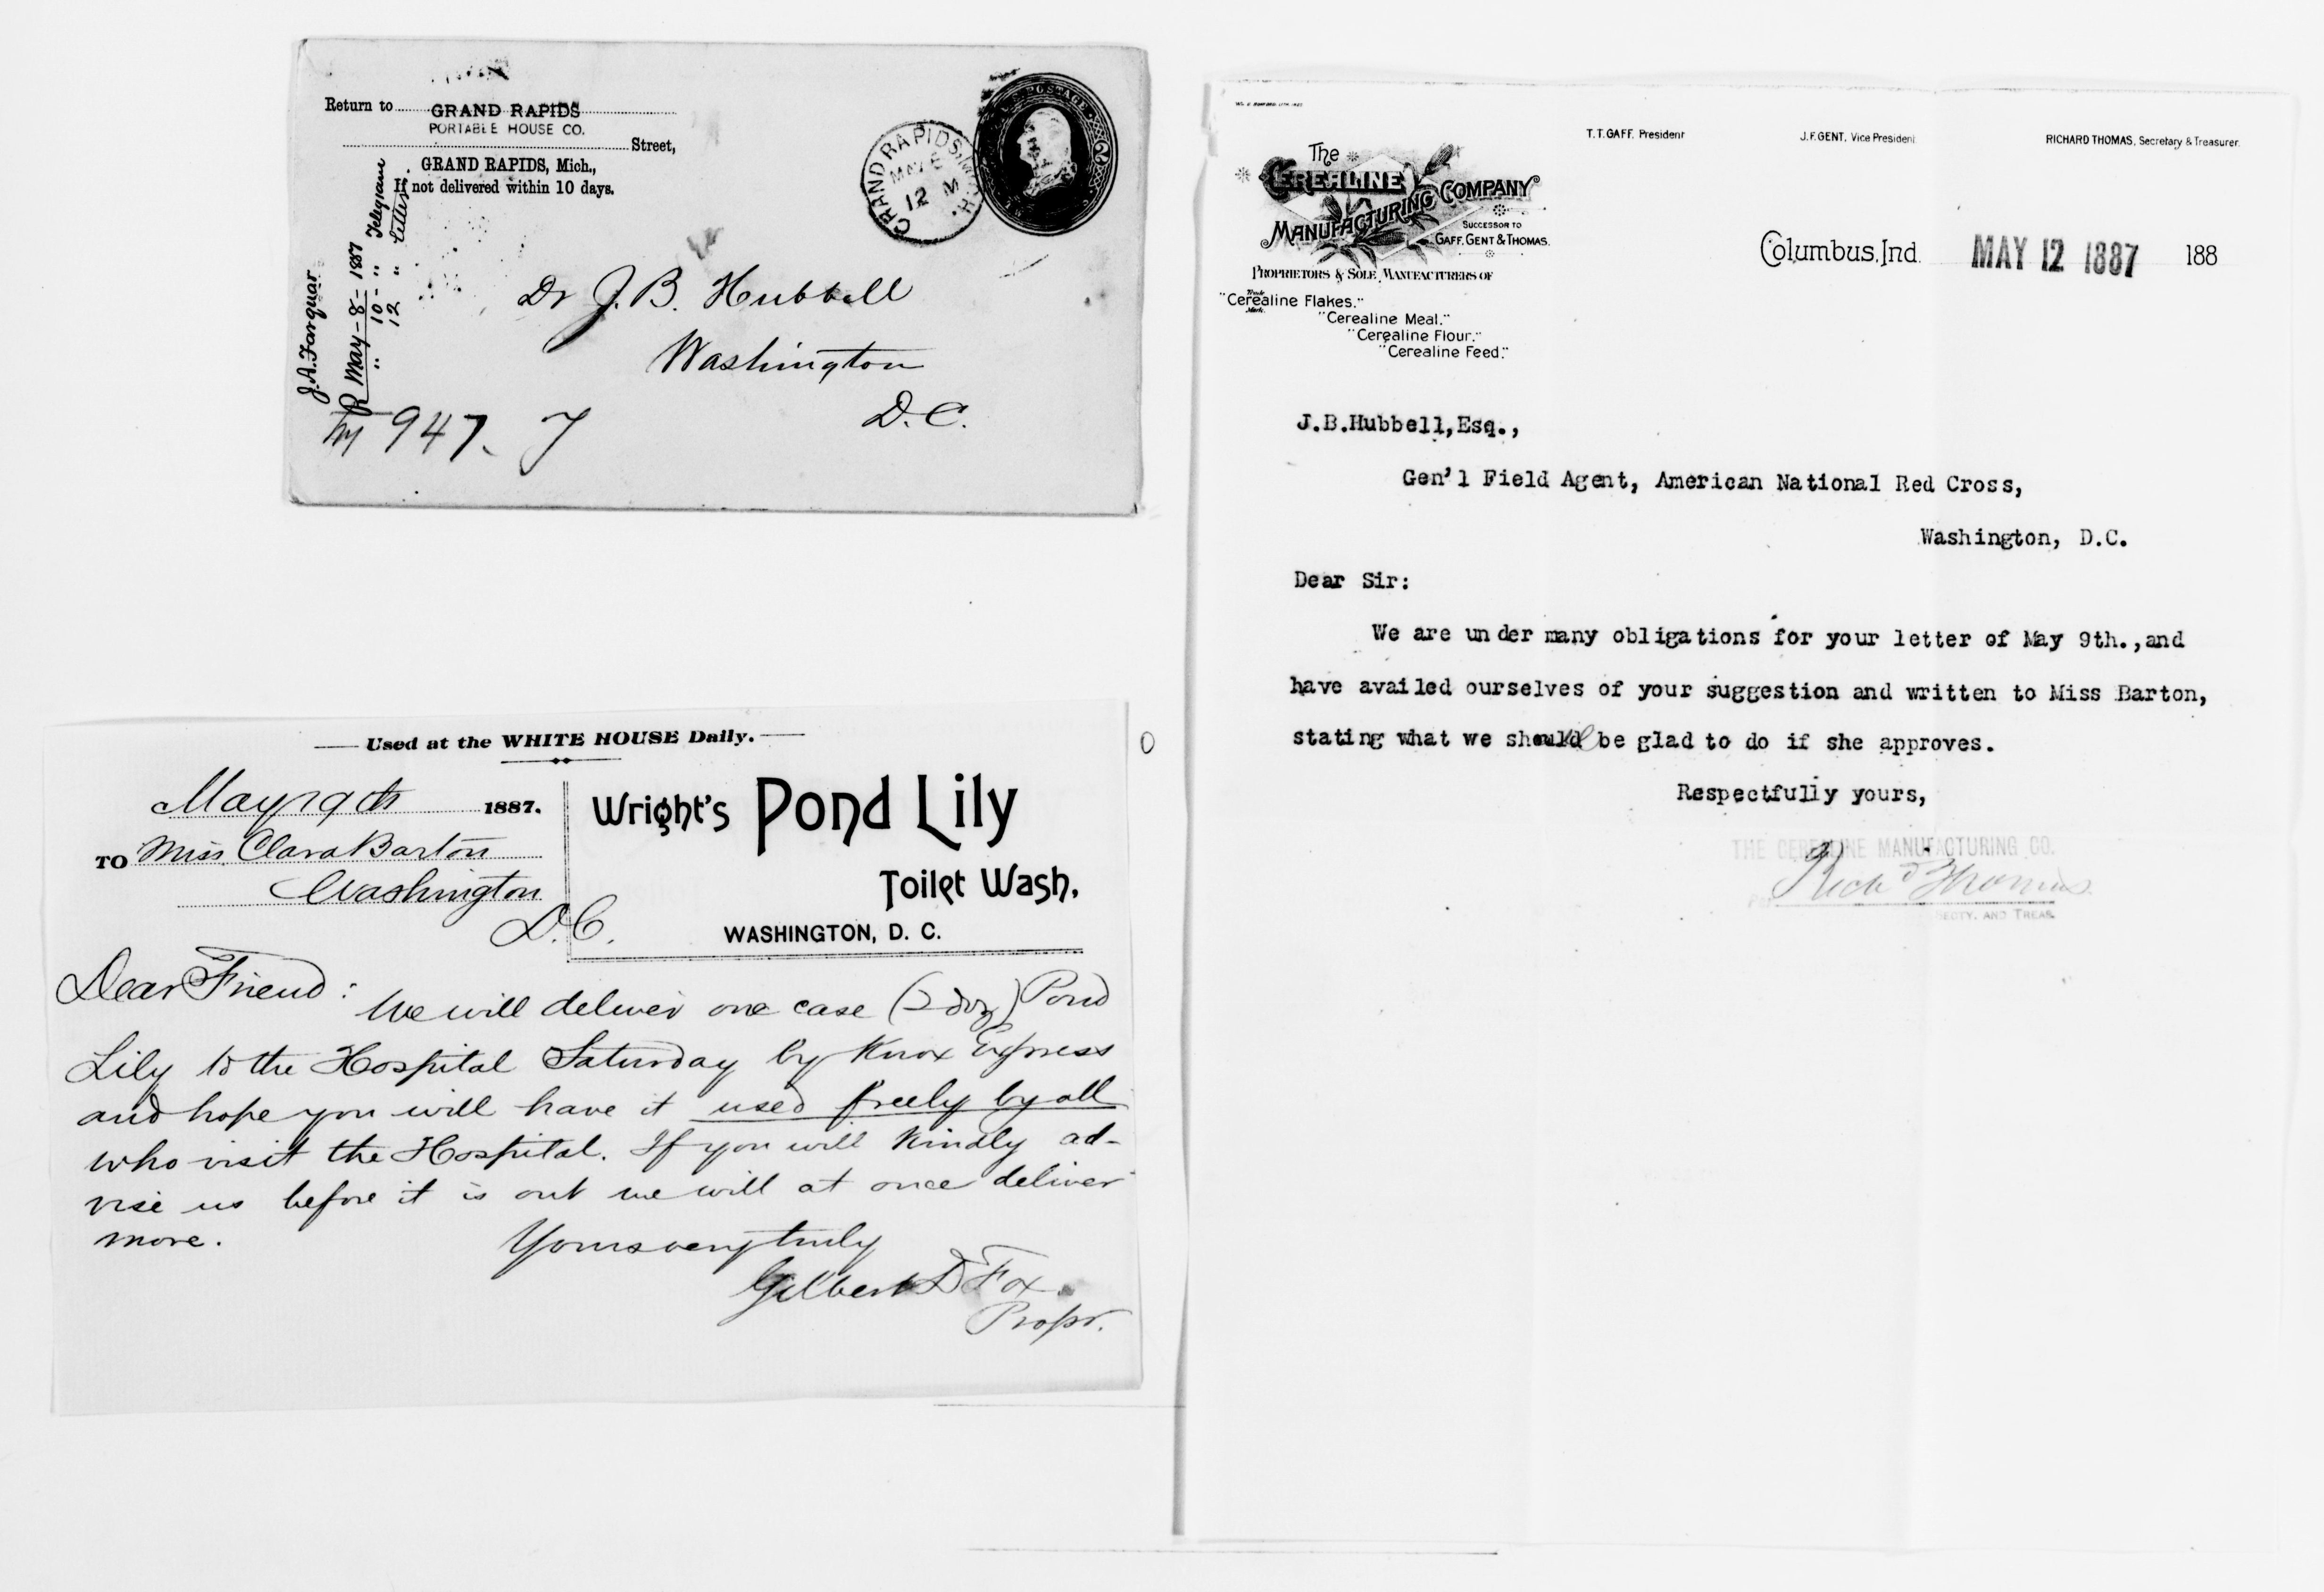 Return to GRAND RAPIDS
PORTABLE HOUSE CO.
Street,
GRAND RAPIDS, Mich.,
If not delivered within 10 days.
J.A. Farquar
R May - 8 - 1887
" 10 - " Telegram
12 " Letter.
GRAND RAPIDS, MICH.
MAY
12 M
U.S. POSTAGE
2
Dr J. B. Hubbell
Washington
D. C.
947.
Used at the WHITE HOUSE Daily.
May 19th 1887.
TO Miss Clara Barton
Washington
D.C.
Wright's Pond Lily
Toilet Wash,
WASHINGTON, D. C.
Dear Friend:
We will deliver one case (2 doz) Pond
Lily to the Hospital Saturday by Knox Express
and hope you will have it used freely by all
who visit the Hospital. If you will kindly ad-
vise us before it is out we will at once deliver
more.
Yours very truly
Gilbert D Fox
Propr.
T. T. GAFF, President
J. F. GENT, Vice President
RICHARD THOMAS, Secretary & Treasurer.
The
CEREALINE
MANUFACTURING COMPANY
SUCCESSOR TO
GAFF, GENT & THOMAS.
PROPRIETORS & SOLE MANUFACTURERS OF
"Cerealine Flakes."
Trade Mark.
"Cerealine Meal."
"Cerealine Flour."
"Cerealine Feed."
Columbus, Ind. MAY 12 1887 188
J.B.Hubbell,Esq.,
Gen'l Field Agent, American National Red Cross,
Washington, D.C.
Dear Sir:
We are under many obligations for your letter of May 9th.,and
have availed ourselves of your suggestion and written to Miss Barton,
stating what we should be glad to do if she approves.
Respectfully yours,
THE CEREALINE MANUFACTURING CO.
Per Rich'd Thomas
SECTY. AND TREAS.